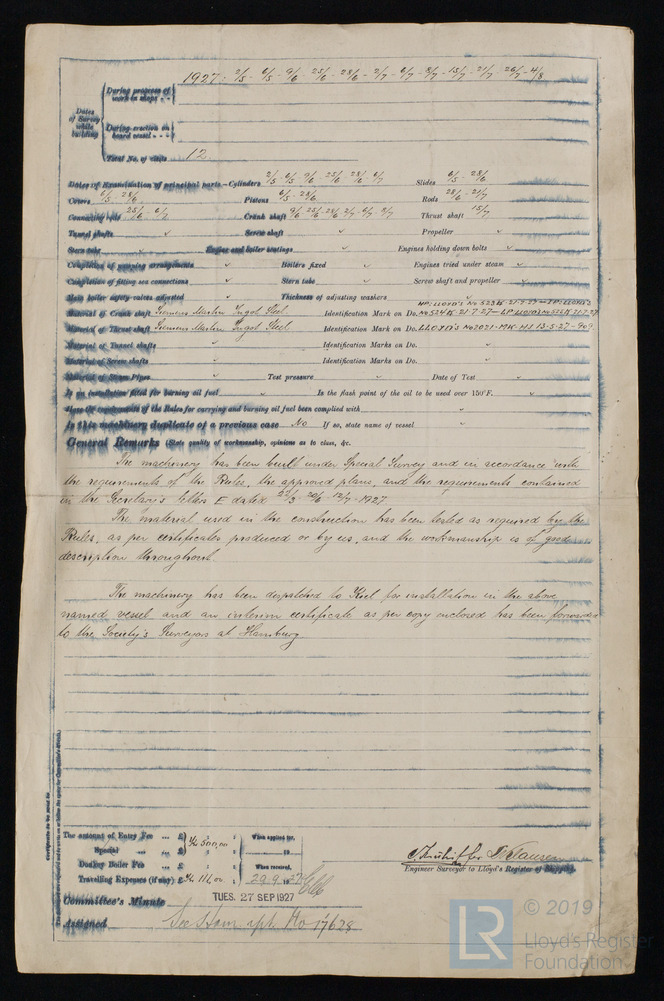 1927: 2/5 - 6/5 - 9/6 - 25/6 - 28/6 - 2/7 - 6/7 - 8/7 - 15/7 - 21/7 - 26/7 - 4/8
During progress of
work in shops - -
Dates
of Survey
while
building
During erection on
board vessel - -
Total No. of visits 12
Dates of Examination of principal parts—Cylinders 2/5 - 6/5 - 9/6 25/6 28/6 - 6/7 Slides 6/5 - 28/6
Covers 6/5 - 28/6 Pistons 6/5 - 28/6 Rods 28/6 - 21/7
Connecting rods 25/6 6/7 Crank shaft 9/6 - 25/6 - 28/6 - 2/7 - 6/7 - 8/7 Thrust shaft 15/7
Tunnel shafts Screw shaft Propeller
Stern tube Engine and boiler seatings Engines holding down bolts
Completion of pumping arrangements Boilers fixed Engines tried under steam
Completion of fitting sea connections Stern tube Screw shaft and propeller
Main boiler safety valves adjusted Thickness of adjusting washers
Material of Crank shaft Siemens Martin Ingot Steel Identification Mark on Do. HP: LLOYD'S No 523 K - 21-7-27 — IP: LLOYD'S No 524 K - 21-7-27 — LP: LLOYD'S
Material of Thrust shaft Siemens Martin Ingot Steel Identification Mark on Do. LLOYD'S No 2021 - 13-5-27 - 909
Material of Tunnel shafts Identification Marks on Do.
Material of Screw shafts Identification Marks on Do.
Material of Steam Pipes Test pressure Date of Test
Is an installation fitted for burning oil fuel Is the flash point of the oil to be used over 150°F.
Have the requirements of the Rules for carrying and burning oil fuel been complied with
Is this machinery duplicate of a previous case No If so, state name of vessel
General Remarks (State quality of workmanship, opinions as to class, &c.
The machinery has been built under Special Survey and in accordance with
the requirements of the Rules, the approved plans, and the requirements contained
in the Secretary's letters E dated 20/6 - 12/7 - 1927
The material used in the construction has been tested as required by the
Rules, as per certificates produced or by us, and the workmanship is of good
description throughout.
The machinery has been dispatched to Kiel for installation in the above
named vessel and an interim certificate as per copy enclosed has been forwarded
to the Society's Surveyors at Hamburg
The amount of Entry Fee ... £
Special ... £ 500,00
Donkey Boiler Fee ... £
Travelling Expenses (if any) £
When applied for,
When received,
29.9.27
Engineer Surveyor to Lloyd's Register of Shipping.
Committee's Minute TUES. 27 SEP 1927
Assigned See Ham. rpt. No 17628
LR © 2019
Lloyd's Register
Foundation